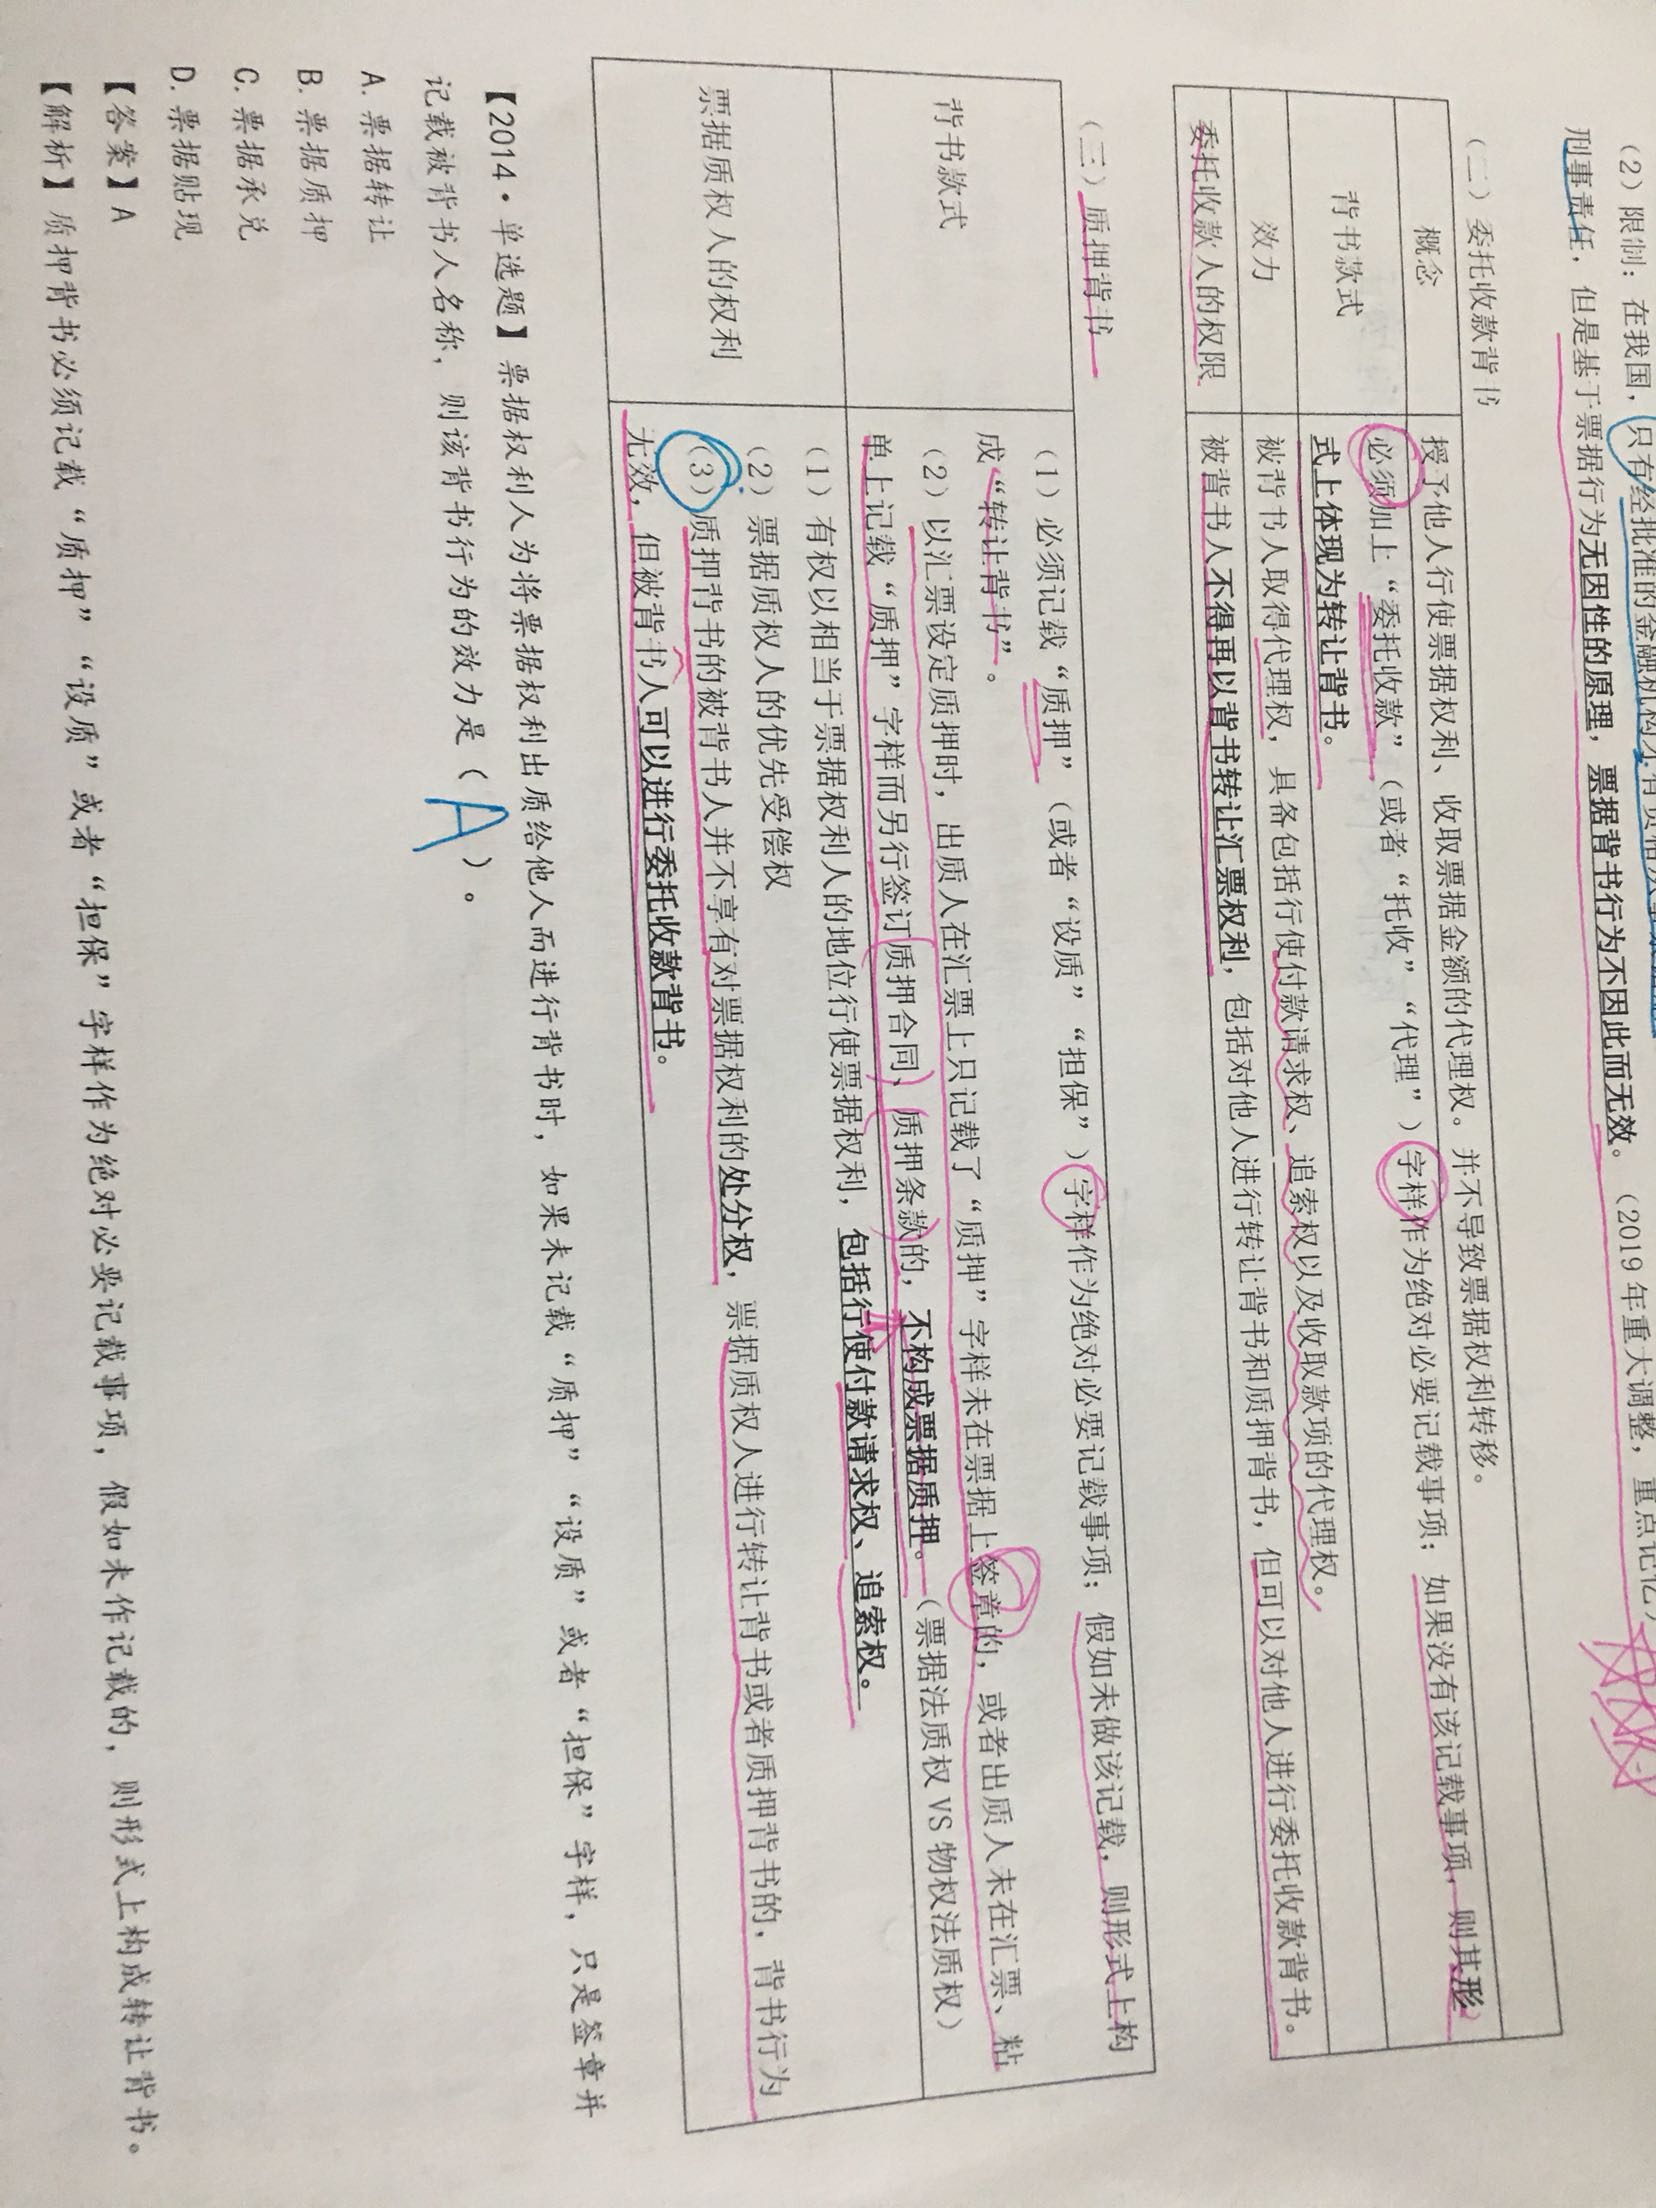 （2）限制：在我国，只有经批准的金融机构才有资格从事
刑事责任，但是基于票据行为无因性的原理，票据背书行为不因此而无效。（2019年重大调整，重点记忆）
（二）委托收款背书
概念
授予他人行使票据权利、收取票据金额的代理权。并不导致票据权利转移。
背书款式
必须加上“委托收款”（或者“托收”“代理”）字样作为绝对必要记载事项；如果没有该记载事项，则其形
式上体现为转让背书。
效力
被背书人取得代理权，具备包括行使付款请求权、追索权以及收取款项的代理权。
委托收款人的权限
被背书人不得再以背书转让汇票权利，包括对他人进行转让背书和质押背书，但可以对他人进行委托收款背书。
（三）质押背书
背书款式
（1）必须记载“质押”（或者“设质”“担保”）字样作为绝对必要记载事项；假如未做该记载，则形式上构
成“转让背书”。
（2）以汇票设定质押时，出质人在汇票上只记载了“质押”字样未在票据上签章的，或者出质人未在汇票、粘
单上记载“质押”字样而另行签订质押合同、质押条款的，不构成票据质押。（票据法质权VS物权法质权）
票据质权人的权利
（1）有权以相当于票据权利人的地位行使票据权利，包括行使付款请求权、追索权。
（2）票据质权人的优先受偿权
（3）质押背书的被背书人并不享有对票据权利的处分权，票据质权人进行转让背书或者质押背书的，背书行为
无效，但被背书人可以进行委托收款背书。
【2014·单选题】票据权利人为将票据权利出质给他人而进行背书时，如果未记载“质押”“设质”或者“担保”字样，只是签章并
记载被背书人名称，则该背书行为的效力是（A）。
A.票据转让
B.票据质押
C.票据承兑
D.票据贴现
【答案】A
【解析】质押背书必须记载“质押”“设质”或者“担保”字样作为绝对必要记载事项，假如未作记载的，则形式上构成转让背书。